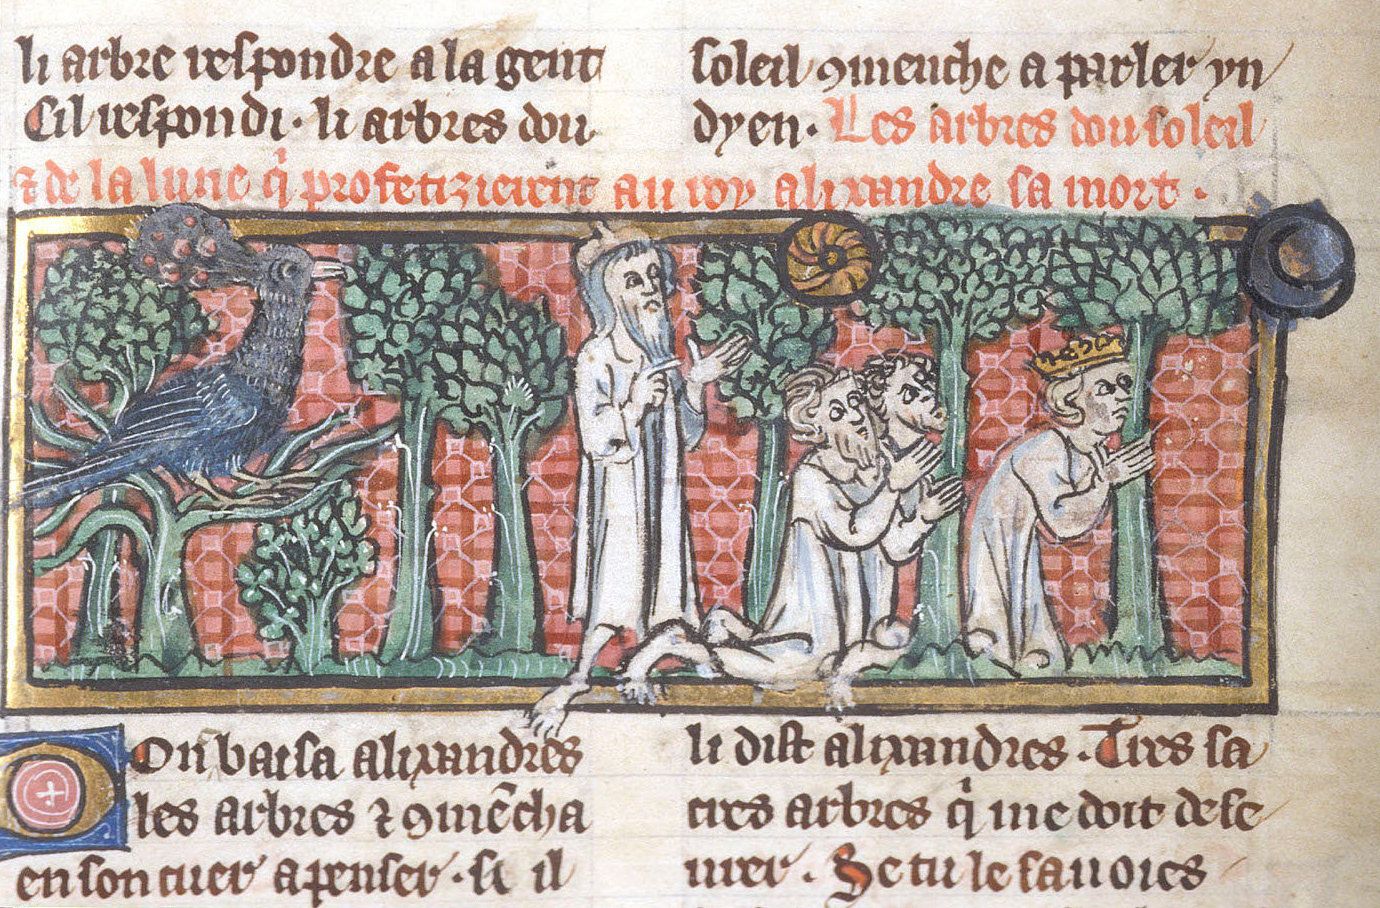 li arbre respondre a la gent
Cil respondi. li arbres dou
soleil 9menche a parler yn
dyen. Les arbres dou soleil
⁊ de la lune q̇ profetizierent au roy alixandre sa mort.
Don baisa alixandres
les arbres ⁊ 9mẽcha
en son cuer a penser. si il
li dist alixandres. Tres sa
cres arbres q̇ me doit dese
urer. Se tu le sauoies